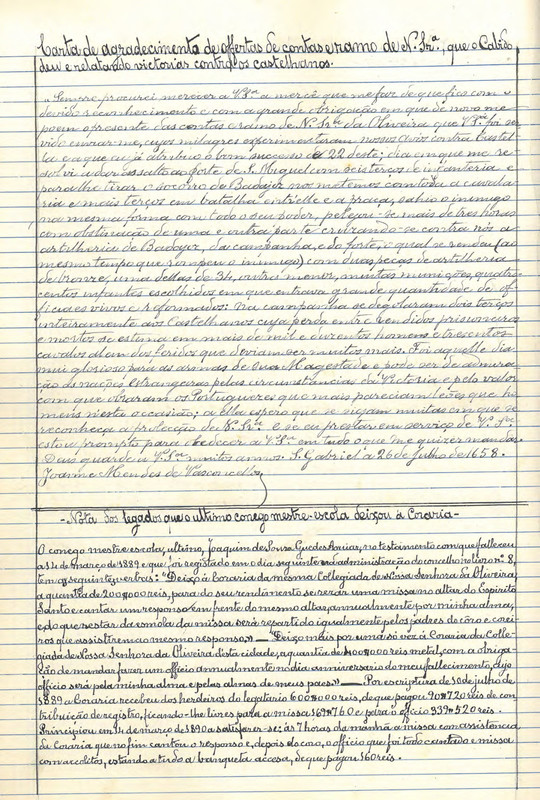 Carta de agradecimento de offertas de contas e ramo de N. Srª, que o Cabido
deu e relatando victorias contra os castelhanos.
"Sempre procurei merecer a V. Sª a mercê que me faz de que fico com
devido reconhecimento e com a grande obrigação em que de novo me
poem o presente das contas e ramo de N. Srª da Oliveira que V. Sª foi ser-
vido enviar-me, cujos milagres experimentaram nossos avós contra Castel-
la e a que eu já atribuo o bom successo de 22 deste; dia em que me re-
solvi a dar assalto ao forte de S. Miguel com seis terços de infanteria e
para lhe tirar o socorro de Badajoz nos metemos com toda a cavala-
ria e mais terços em batalha entre elle e a praça, sahio o inimigo
na mesma forma com todo o seu poder, pelejou-se mais de tres horas
com obstinação de uma e outra parte cruzando-se contra nós a
artilheria de Badajoz, da campanha, e do forte, o qual se rendeu (ao
mesmo tempo que rompeu o inimigo) com duas peças de artilheria
de bronze, uma dellas de 34, outra menor, muitas munições, quatro-
centos infantes escolhidos em que entrava grande quantidade de of-
ficiaes vivos e reformados: na campanha se degolaram dois terços
inteiramente aos Castelhanos cuja perda entre rendidos prisioneiros
e mortos se estima em mais de mil e duzentos homens e tresentos
cavalos alem dos feridos que deviam ser muitos mais. Foi aquelle dia
mui glorioso para as armas de Sua Magestade e pode ser de admira-
ção ás nações estrangeiras pelas circunstancias da Victoria e pelo valor
com que obraram os Portuguezes que mais pareciam leões que ho-
mens n'esta occasião; a ella espero que se sigam muitas em que se
reconheça a protecção de N. Srª e se eu prestar em serviço de V. Sª
estou prompto para obedecer a V. Sª em tudo o que me quizer mandar.
Deus guarde a V. Sª muitos annos. S. Gabriel a 26 de Julho de 1658.
Joanne Mendes de Vasconcellos
- Nota dos legados que o ultimo conego mestre-escola deixou á Coraria -
O conego mestre escola, ultimo, Joaquim de Sousa Guedes Aguiar, no testamento com que falleceu
a 14 de março de 1889 e que foi registado em o dia seguinte na administração do concelho no livro nº 8,
tem as seguintes verbas: "Deixo á Coraria da mesma Collegiada de Nossa Senhora da Oliveira,
a quantia de 200$000 reis, para do seu rendimento se rezar uma missa no altar do Espirito
Santo e cantar um responso em frente do mesmo altar, annualmente por minha alma,
e do que restar da esmola da missa será repartido igualmente pelos padres do côro e corei-
ros que assistirem ao mesmo responso,» — "Deixo mais por uma só vez á Coraria da Colle-
giada de Nossa Senhora da Oliveira desta cidade, a quantia de 400$000 reis metal, com a obriga-
ção de mandar fazer um officio annualmente no dia anniversario do meu fallecimento, cujo
officio será pela minha alma e pelas almas de meus paes» — Por escriptura de 10 de julho de
1889 a Coraria recebeu dos herdeiros do legatario 600$000 reis, de que pagou 90$720 reis de con-
tribuição de registro, ficando-lhe livres para a missa 169$760 e para o officio 339$520 reis.
Principiou em 14 de março de 1890 a satisfazer-se; ás 7 horas da manhã a missa com assistencia
da Coraria no fim cantou o responso e, depois do coro, o officio que foi todo cantado e missa
com acolitos, estando a tudo a banqueta accesa, de que pagou 160 reis.